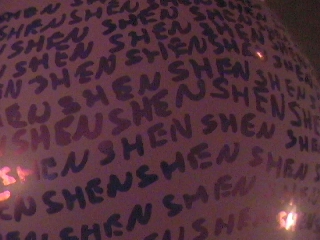 SHEN SHEN SHEN
SHEN SHEN SHEN SHEN
SHEN SHEN SHEN SHEN
SHEN SHEN SHEN SHEN
SHEN SHEN SHEN SHEN
SHEN SHEN SHEN SHEN
SHEN SHEN SHEN SHEN
SHEN SHEN SHEN SHEN
SHEN SHEN SHEN
SHEN SHEN SHEN